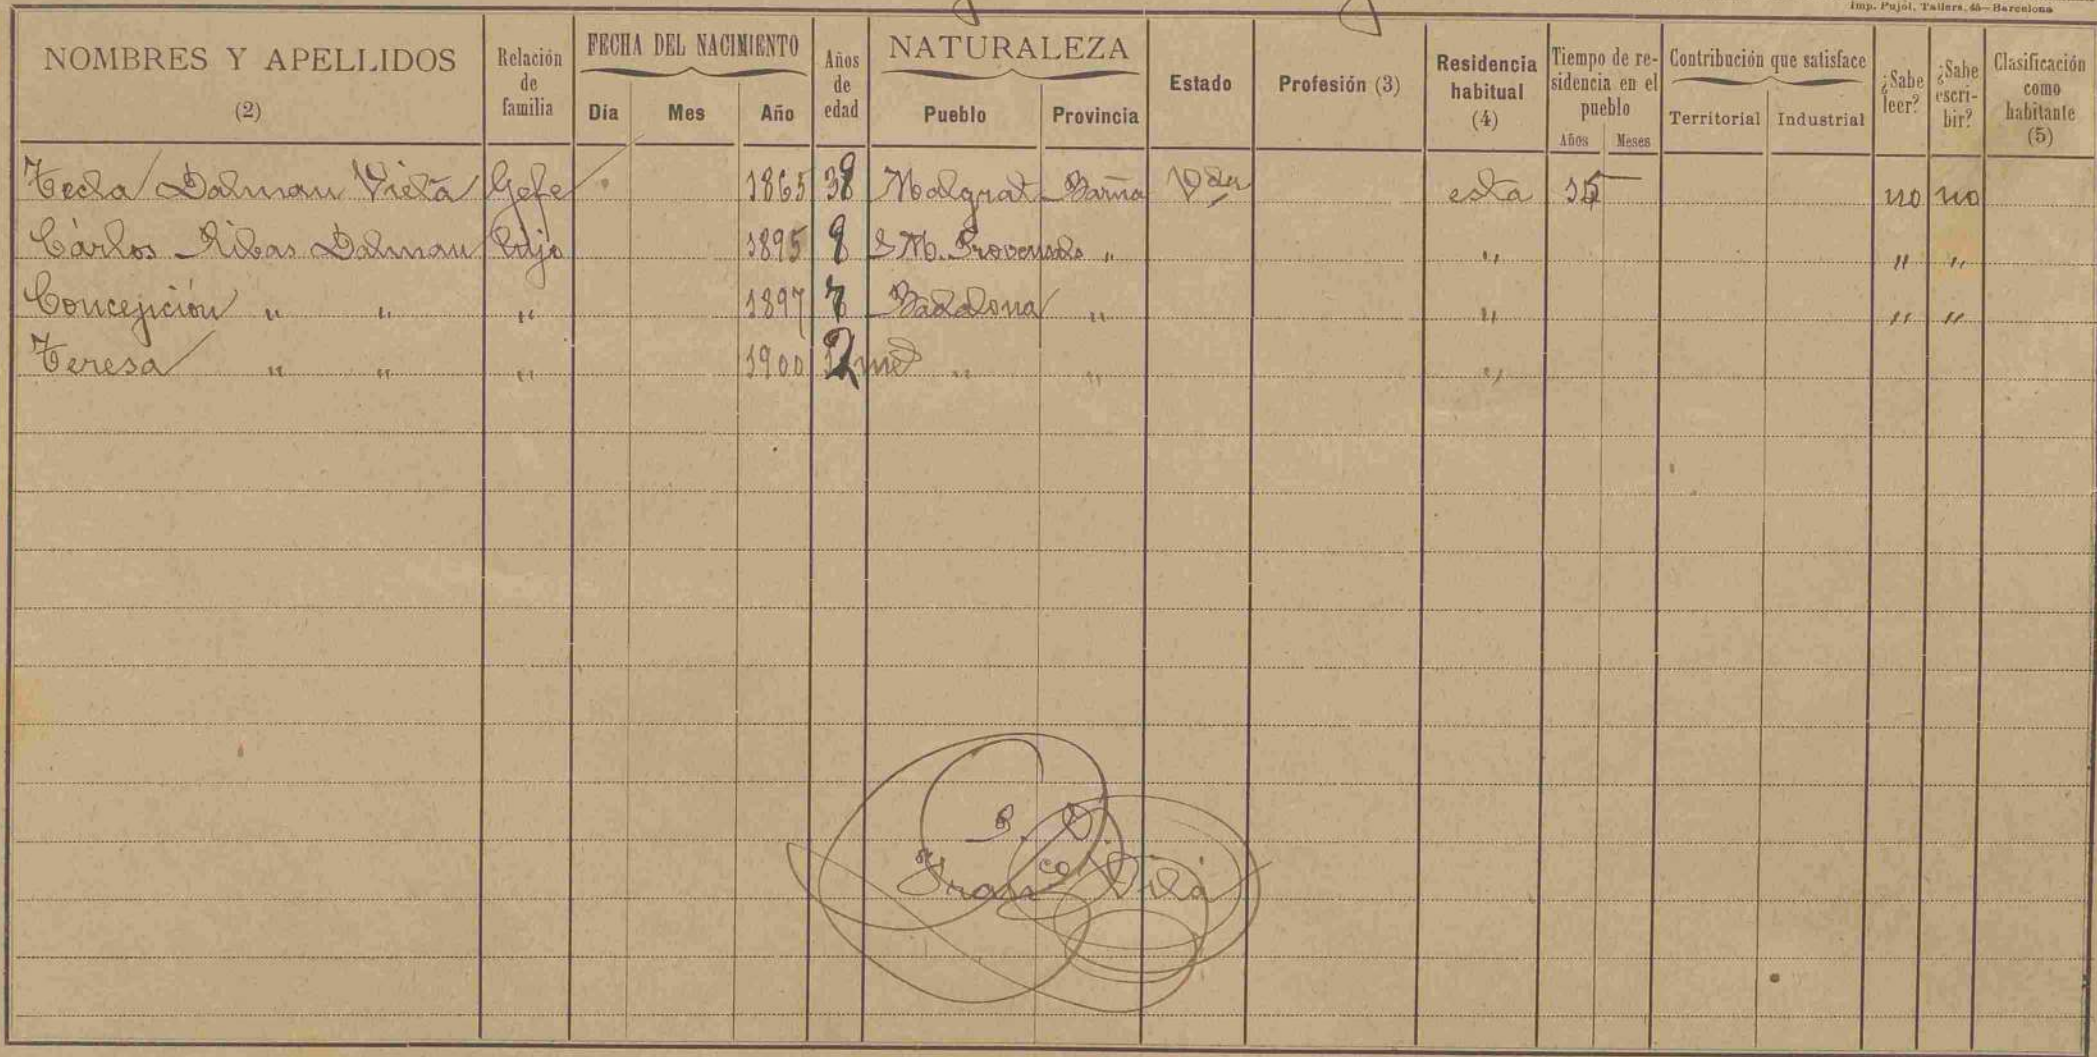 Imp. Pujol, Tallers, 45—Barcelona
NOMBRES Y APELLIDOS (2) Relación de familia FECHA DEL NACIMIENTO Día Mes Año Años de edad NATURALEZA Pueblo Provincia Estado Profesión (3) Residencia habitual (4) Tiempo de residencia en el pueblo Años Meses Contribución que satisface Territorial Industrial ¿Sabe leer? ¿Sabe escribir? Clasificación como habitante (5)
Tecla Dalmau Vietà Gefe 1865 38 Malgrat Barna Vda esta 15 no no
Cárlos Ribas Dalmau hijo 1895 8 S M. Provensals " " " "
Concepción " " " 1897 Badalona " " " "
Teresa " " " 1900 2 " " "
P. O.
Franco Vilá